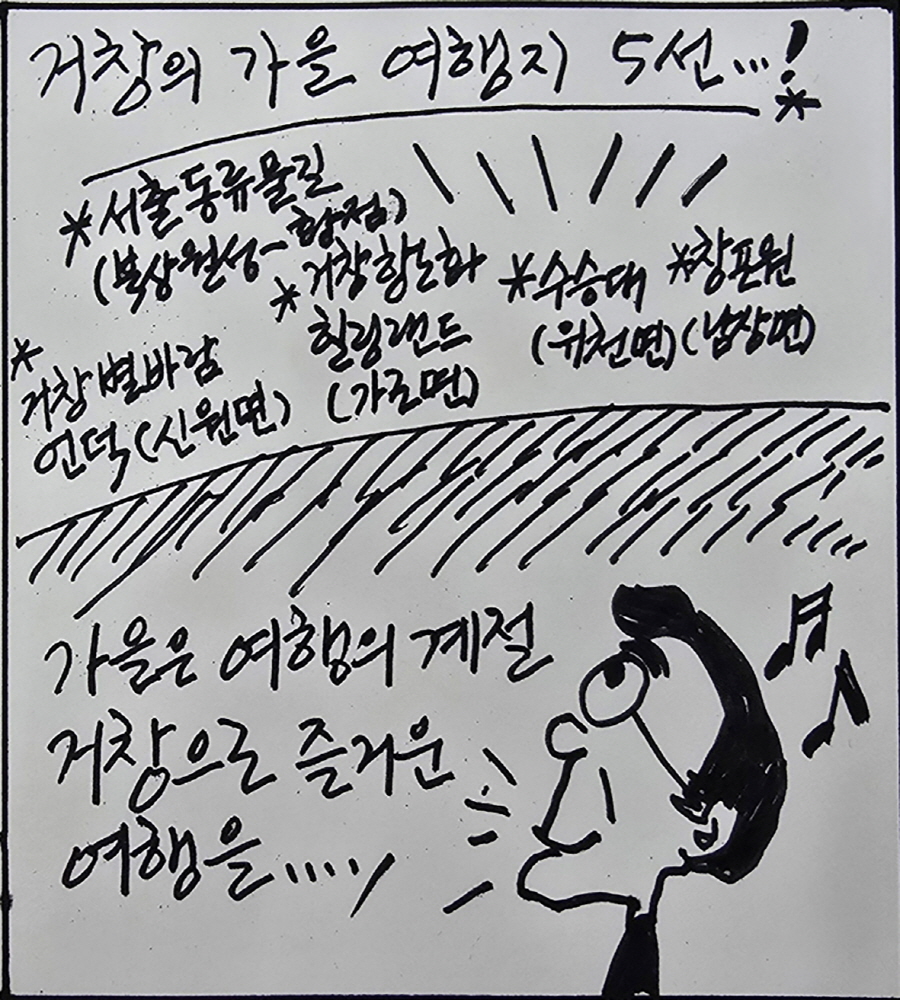 거창의 가을 여행지 5선...!
*서출동류물길
(북상월성-황점)
*거창항노화
힐링랜드
(가조면)
*수승대
(위천면)
*창포원
(남상면)
*
거창별바람
언덕(신원면)
가을은 여행의 계절
거창으로 즐거운
여행을....